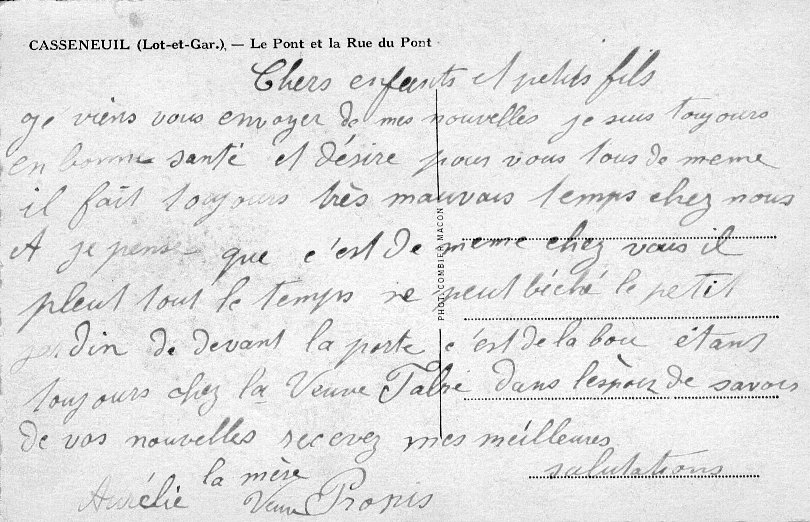 CASSENEUIL (Lot-et-Gar.), — Le Pont et la Rue du Pont
Chers enfants et petits fils
je viens vous envoyer de mes nouvelles je suis toujours
en bonne santé et désire pour vous tous de meme
il fait toujours très mauvais temps chez nous
et je pense que c'est de meme chez vous il
pleut tout le temps ne peut béché le petit
jardin de devant la porte c'est de la bou étant
toujours chez la Veuve Fabre dans l'espoir de savoir
de vos nouvelles recevez mes méilleures
salutations
la mère
Aurélie Veuve
PHOT. COMBIER MACON